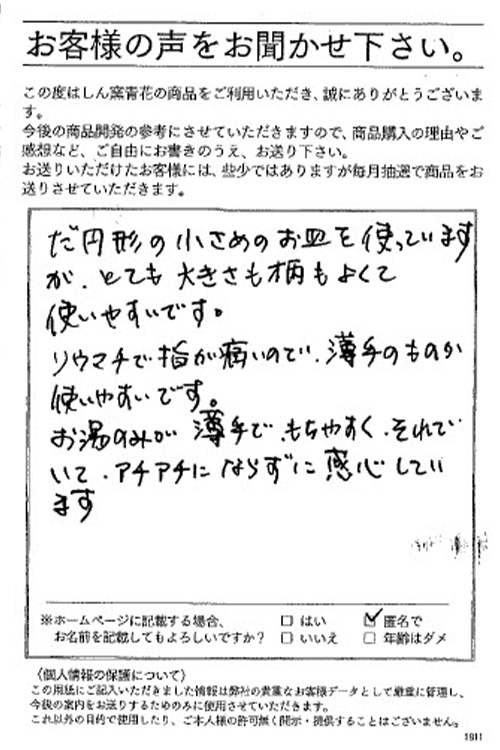 お客様の声をお聞かせ下さい。
この度はしん窯青花の商品をご利用いただき、誠にありがとうございま
す。
今後の商品開発の参考にさせていただきますので、商品購入の理由やご
感想など、ご自由にお書きのうえ、お送り下さい。
お送りいただけたお客様には、些少ではありますが毎月抽選で商品をお
送りさせていただきます。
だ円形の小さめのお皿を使っています
が、とても大きさも柄もよくて
使いやすいです。
リウマチで指が痛いので、薄手のものが
使いやすいです。
お湯のみが薄手で、もちやすく、それで
いて、アチアチにならずに感心してい
ます
※ホームページに記載する場合、 □ はい ☑ 匿名で
お名前を記載してもよろしいですか？ □ いいえ □ 年齢はダメ
〈個人情報の保護について〉
この用紙にご記入いただきました情報は弊社の貴重なお客様データとして厳重に管理し、
今後の案内をお送りするためのみに使用させていただきます。
これ以外の目的で使用したり、ご本人様の許可無く開示・提供することはございません。
1811